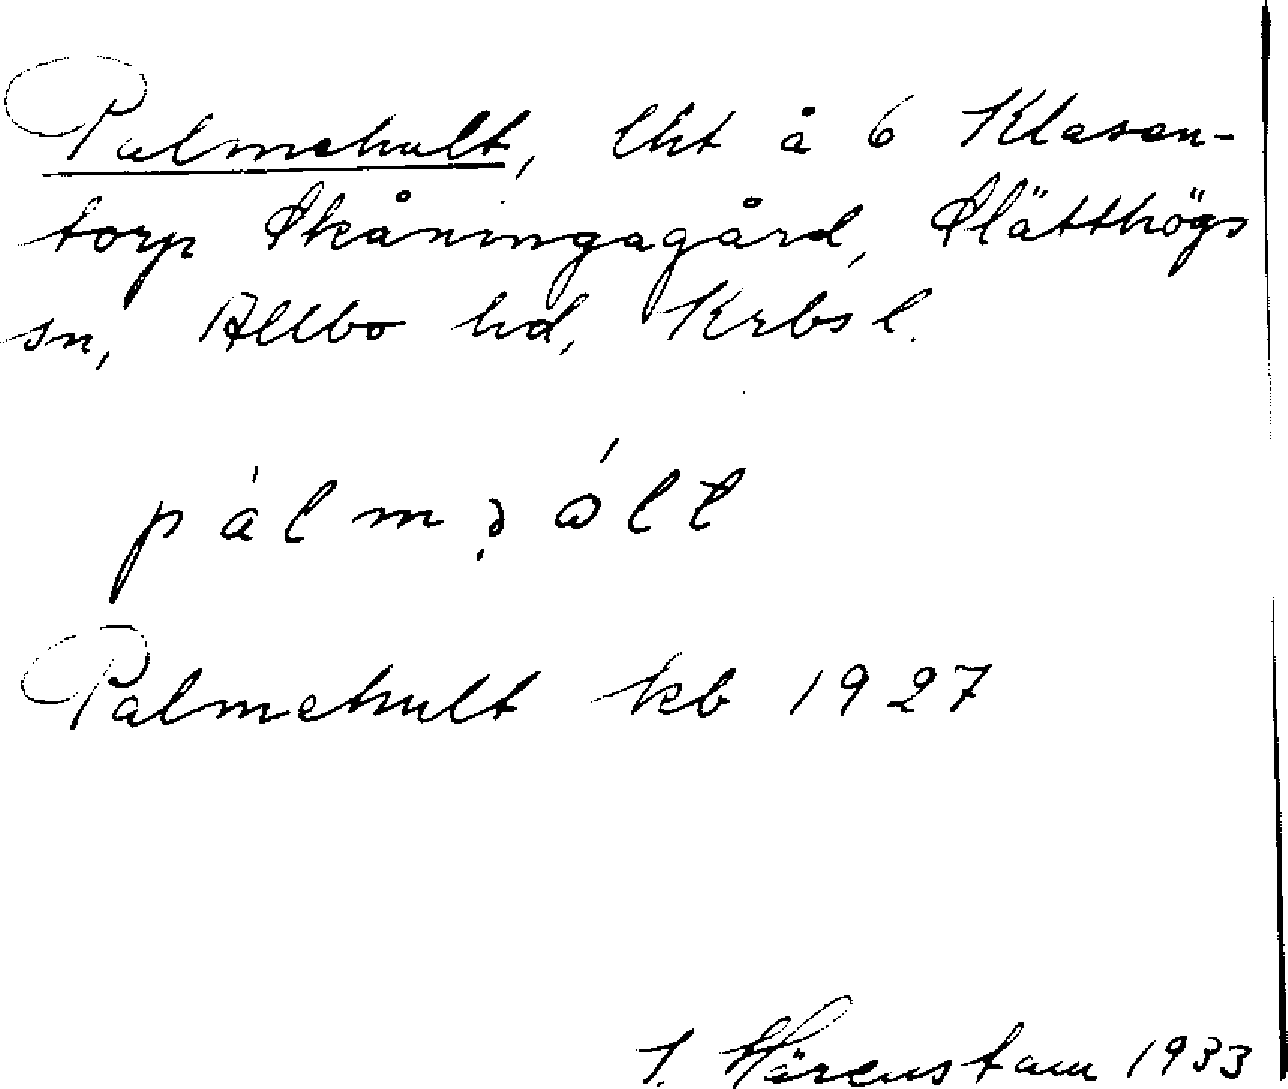 Palmehult, lht å 6 Klasen-
torp Skåningagård, Slätthögs
sn, Allbo hd, Krbs l.
Palmehult kb 1927
J. Hårenstam 1933